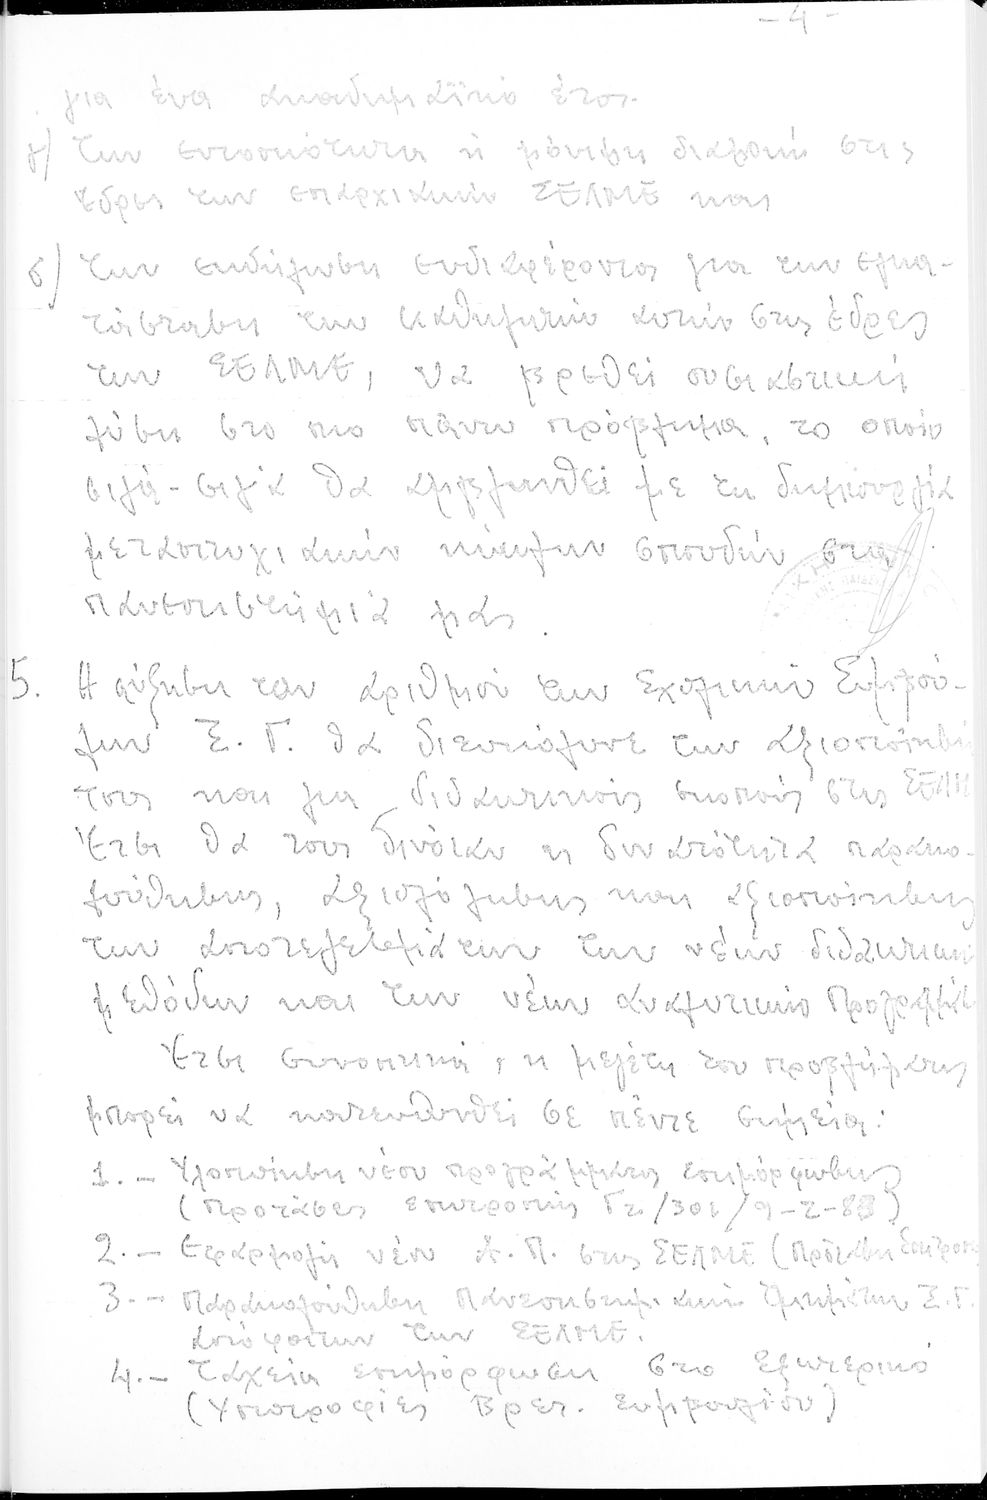 - 4 -
για ένα ακαδημαϊκό έτος.
γ) την εντοπιότητα ή μόνιμη διαμονή στις
έδρες των επαρχιακών ΣΕΛΜΕ και
δ) την εκδήλωση ενδιαφέροντος για την εγκα-
τάσταση των καθηγητών αυτών στις έδρες
των ΣΕΛΜΕ, να βρεθεί ουσιαστική
λύση στο πιο πάνω πρόβλημα, το οποίο
σιγά-σιγά θα αμβλυνθεί με τη δημιουργία
μεταπτυχιακών κύκλων σπουδών στα
πανεπιστήμιά μας.
5. Η αύξηση του αριθμού των Σχολικών Συμβού-
λων Ξ. Γ. θα διευκόλυνε την αξιοποίηση
τους και για διδακτικούς σκοπούς στις ΣΕΛΜ
Έτσι θα τους δινόταν η δυνατότητα παρακο-
λούθησης, αξιολόγησης και αξιοποίησης
των αποτελεσμάτων των νέων διδακτικών
μεθόδων και των νέων αναλυτικών Προγραμμάτ
Έτσι συνοπτικά, η μελέτη του προβλήματος
μπορεί να κατευθυνθεί σε πέντε σημεία:
1. - Υλοποίηση νέου προγράμματος επιμόρφωσης
(προτάσεις επιτροπής Γ2/301/9-2-83)
2. - Εφαρμογή νέου Α. Π. στις ΣΕΛΜΕ (πρόταση Επιτροπ
3. - Παρακολούθηση Πανεπιστημιακών Τμημάτων Ξ. Γ.
αποφοίτων των ΣΕΛΜΕ.
4. - Ταχεία επιμόρφωση στο Εξωτερικό
(Υποτροφίες Βρετ. Συμβουλίου)